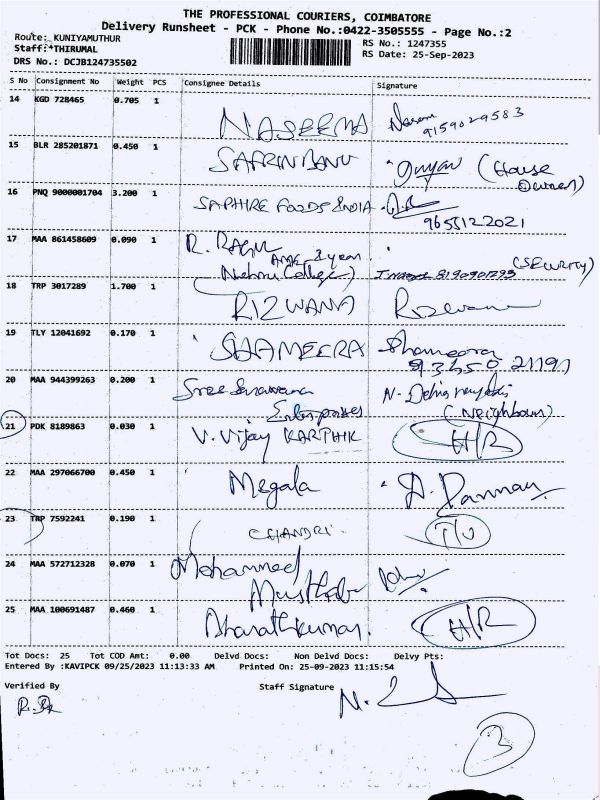 THE PROFESSIONAL COURIERS, COIMBATORE
Delivery Runsheet - PCK - Phone No.:0422-3505555 - Page No.:2
Route: KUNIYAMUTHUR
RS No.: 1247355
Staff:*THIRUMAL
RS Date: 25-Sep-2023
DRS No.: DCJB124735502
S No Consignment No Weight PCS Consignee Details Signature
14 KGD 728465 0.705 1 NASEEMA
9159029583
15 BLR 285201871 0.450 1 SAFRIN BANU (House Owner)
16 PNQ 9000001704 3.200 1 SAPHIRE FOODS INDIA
9655122021
17 MAA 861458609 0.090 1 R. RAGU
year
Nehru College) 8190901395 (SECURITY)
18 TRP 3017289 1.700 1 RIZWANA Rizwana
19 TLY 12041692 0.170 1 SHAMEERA Shameera
93450 21191
20 MAA 944399263 0.200 1 Sree N.
Enterprises (Neighbour)
21 PDK 8189863 0.030 1 V. Vijay KARTHIK H/R
22 MAA 297066700 0.450 1 Megala
23 TRP 7592241 0.190 1 CHANDRI.
24 MAA 572712328 0.070 1 Mohammed
25 MAA 100691487 0.460 1 Bharathkumar. H/R
Tot Docs: 25 Tot COD Amt: 0.00 Delvd Docs: Non Delvd Docs: Delvy Pts:
Entered By :KAVIPCK 09/25/2023 11:13:33 AM Printed On: 25-09-2023 11:15:54
Verified By Staff Signature
3